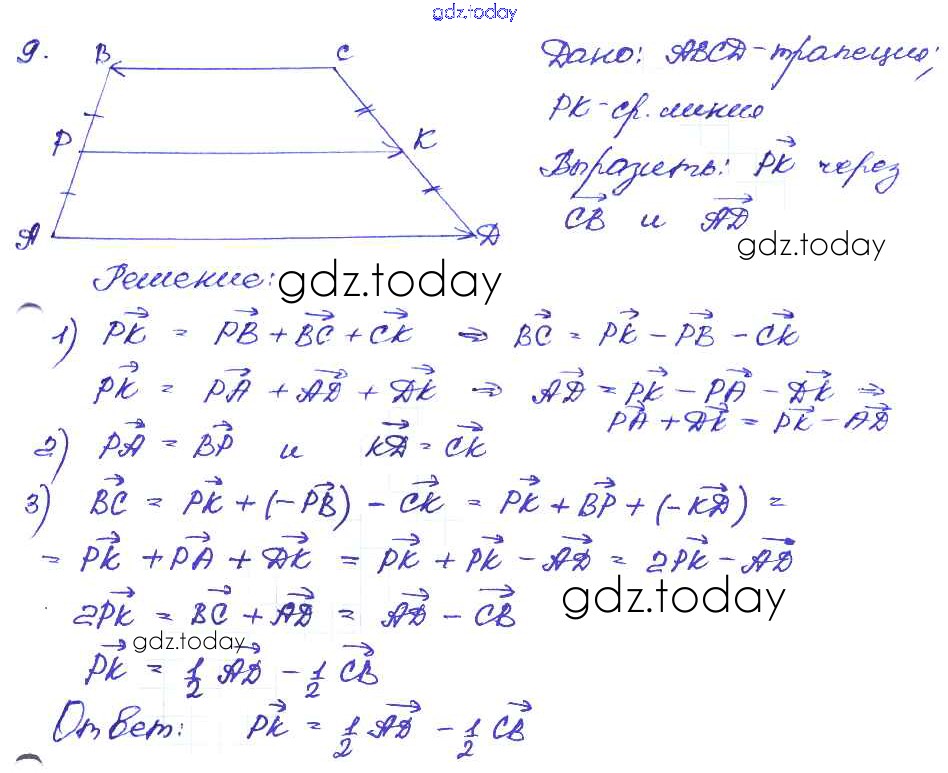 gdz.today
9.
B C
P K
A D
Дано: ABCD - трапеция;
PK - ср. линия
Выразить: PK⃗ через
CB⃗ и AD⃗
gdz.today
Решение: gdz.today
1) PK⃗ = PB⃗ + BC⃗ + CK⃗ ⇒ BC⃗ = PK⃗ − PB⃗ − CK⃗
PK⃗ = PA⃗ + AD⃗ + DK⃗ ⇒ AD⃗ = PK⃗ − PA⃗ − DK⃗ ⇒
PA⃗ + DK⃗ = PK⃗ − AD⃗
2) PA⃗ = BP⃗ и KD⃗ = CK⃗
3) BC⃗ = PK⃗ + (−PB⃗) − CK⃗ = PK⃗ + BP⃗ + (−KD⃗) =
= PK⃗ + PA⃗ + DK⃗ = PK⃗ + PK⃗ − AD⃗ = 2PK⃗ − AD⃗
2PK⃗ = BC⃗ + AD⃗ = AD⃗ − CB⃗
gdz.today
gdz.today
PK⃗ = 1/2 AD⃗ − 1/2 CB⃗
Ответ: PK⃗ = 1/2 AD⃗ − 1/2 CB⃗